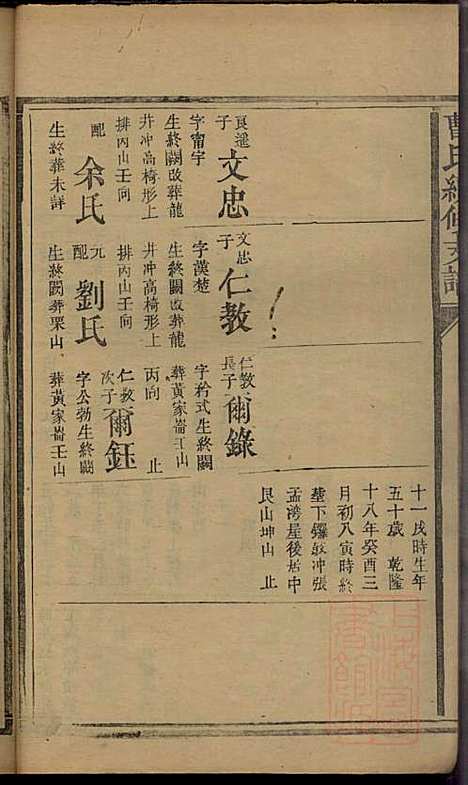 曹氏續修支譜
良遥子文忠
字甯宇
生終闕改葬龍
井冲高椅形上
排丙山壬向
配余氏
生終葬未詳
文忠子仁教
字漢楚
生終闕改葬龍
井冲高椅形上
排丙山壬向
元配劉氏
生終闕葬栗山
仁教長子爾錄
字矜式生終闕
葬黃家崙壬山
丙向 止
仁教次子爾鈺
字公勃生終闕
葬黃家崙壬山
十一戌時生年
五十歲 乾隆
十八年癸酉三
月初八寅時終
塟下鑼鼓冲張
孟湾屋後居中
艮山坤山 止